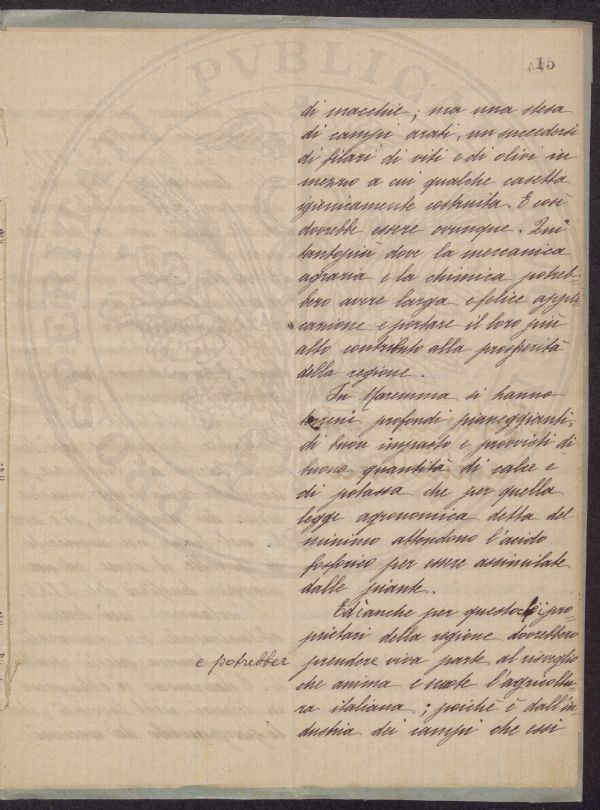 15
di macchie; ma una stesa
di campi arati, un succedersi
di filari di viti e di olivi in
mezzo a cui qualche casetta
igienicamente costruita. E così
dovrebbe essere ovunque. Qui
tantopiù dove la meccanica
agraria e la chimica potreb-
bero avere larga e felice appli
cazione e portare il loro più
alto contributo alla prosperità
della regione.
In Maremma si hanno
terreni profondi pianeggianti,
di buon impasto e provvisti di
buona quantità di calce e
di potassa che per quella
legge agronomica detta del
minimo attendono l'acido
fosforico per essere assimilate
dalle piante.
Ed è anche per questo che i pro-
prietari della regione dovrebbero
e potrebber prendere viva parte al risveglio
che anima e scuote l'agricoltu-
ra italiana; poichè è dall'in-
dustria dei campi che essi